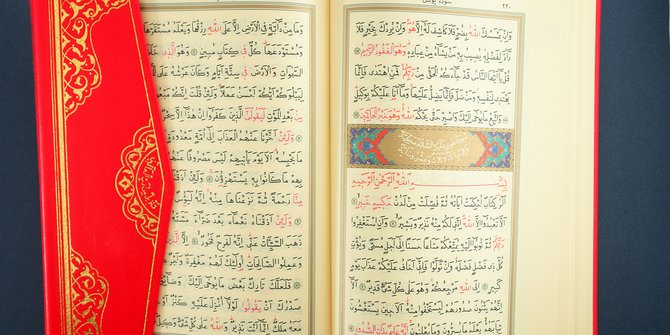 سورة يونس
٢٢٠
وَاِنْ يَمْسَسْكَ اللّٰهُ بِضُرٍّ فَلَا كَاشِفَ لَهُ اِلَّا هُوَ وَاِنْ يُرِدْكَ بِخَيْرٍ فَلَا
رَادَّ لِفَضْلِهِ يُصِيبُ بِهِ مَنْ يَشَاءُ مِنْ عِبَادِهِ وَهُوَ الْغَفُورُ الرَّحِيمُ
قُلْ يَا اَيُّهَا النَّاسُ قَدْ جَاءَكُمُ الْحَقُّ مِنْ رَبِّكُمْ فَمَنِ اهْتَدٰى فَاِنَّمَا
يَهْتَدِي لِنَفْسِهِ وَمَنْ ضَلَّ فَاِنَّمَا يَضِلُّ عَلَيْهَا وَمَا اَنَا عَلَيْكُمْ بِوَكِيلٍ
وَاتَّبِعْ مَا يُوحٰى اِلَيْكَ وَاصْبِرْ حَتّٰى يَحْكُمَ اللّٰهُ وَهُوَ خَيْرُ الْحَاكِمِينَ
بِسْمِ اللّٰهِ الرَّحْمٰنِ الرَّحِيمِ
الٓرٰ كِتَابٌ اُحْكِمَتْ اٰيَاتُهُ ثُمَّ فُصِّلَتْ مِنْ لَدُنْ حَكِيمٍ خَبِيرٍ
اَلَّا تَعْبُدُوا اِلَّا اللّٰهَ اِنَّنِي لَكُمْ مِنْهُ نَذِيرٌ وَبَشِيرٌ وَاَنِ اسْتَغْفِرُوا
رَبَّكُمْ ثُمَّ تُوبُوا اِلَيْهِ يُمَتِّعْكُمْ مَتَاعًا حَسَنًا اِلٰى اَجَلٍ مُسَمًّى وَيُؤْتِ
كُلَّ ذِي فَضْلٍ فَضْلَهُ وَاِنْ تَوَلَّوْا فَاِنِّي اَخَافُ عَلَيْكُمْ عَذَابَ يَوْمٍ
كَبِيرٍ اِلَى اللّٰهِ مَرْجِعُكُمْ وَهُوَ عَلٰى كُلِّ شَيْءٍ قَدِيرٌ اَلَا اِنَّهُمْ
يَثْنُونَ صُدُورَهُمْ لِيَسْتَخْفُوا مِنْهُ اَلَا حِينَ يَسْتَغْشُونَ
ثِيَابَهُمْ يَعْلَمُ مَا يُسِرُّونَ وَمَا يُعْلِنُونَ اِنَّهُ عَلِيمٌ بِذَاتِ الصُّدُورِ
وَمَا مِنْ دَابَّةٍ فِي الْاَرْضِ اِلَّا عَلَى اللّٰهِ رِزْقُهَا وَيَعْلَمُ مُسْتَقَرَّهَا
وَمُسْتَوْدَعَهَا كُلٌّ فِي كِتَابٍ مُبِينٍ وَهُوَ الَّذِي
السَّمٰوَاتِ وَالْاَرْضَ فِي سِتَّةِ اَيَّامٍ وَكَانَ عَرْشُهُ عَلَى
لِيَبْلُوَكُمْ اَيُّكُمْ اَحْسَنُ عَمَلًا وَلَئِنْ قُلْتَ
مِنْ بَعْدِ الْمَوْتِ لَيَقُولَنَّ الَّذِينَ كَفَرُوا اِنْ هٰذَا اِلَّا
وَلَئِنْ اَخَّرْنَا عَنْهُمُ الْعَذَابَ اِلٰى اُمَّةٍ مَعْدُودَةٍ
مَا يَحْبِسُهُ اَلَا يَوْمَ يَأْتِيهِمْ لَيْسَ مَصْرُوفًا عَنْهُمْ
بِهِمْ مَا كَانُوا بِهِ يَسْتَهْزِؤُنَ
مِنَّا رَحْمَةً ثُمَّ نَزَعْنَاهَا مِنْهُ اِنَّهُ لَيَؤُسٌ
وَلَئِنْ اَذَقْنَاهُ نَعْمَاءَ بَعْدَ ضَرَّاءَ مَسَّتْهُ
ذَهَبَ السَّيِّئَاتُ عَنِّي اِنَّهُ لَفَرِحٌ فَخُورٌ اِلَّا
وَعَمِلُوا الصَّالِحَاتِ اُولٰئِكَ لَهُمْ
فَلَعَلَّكَ تَارِكٌ بَعْضَ مَا يُوحٰى اِلَيْكَ وَضَائِقٌ
صَدْرُكَ اَنْ يَقُولُوا لَوْلَا اُنْزِلَ عَلَيْهِ كَنْزٌ اَوْ
اِنَّمَا اَنْتَ نَذِيرٌ وَاللّٰهُ عَلٰى كُلِّ شَيْءٍ